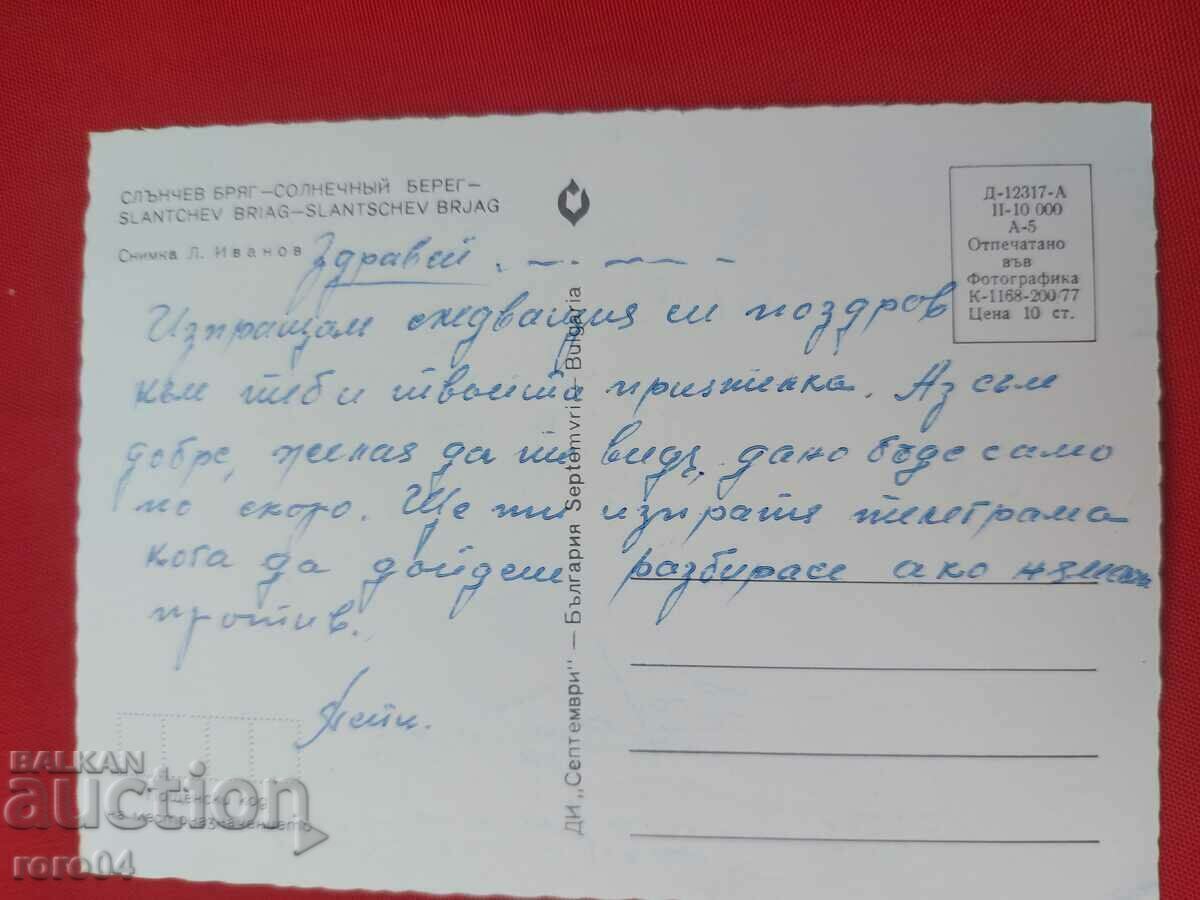 СЛЪНЧЕВ БРЯГ—СОЛНЕЧНЫЙ БЕРЕГ—
SLANTCHEV BRIAG—SLANTSCHEV BRJAG
Снимка Л. Иванов
Здравей
Изпращам следващия си поздрав
към теб и твоята приятелка. Аз съм
добре, желая да те видя, дано бъде само
по скоро. Ще ти изпратя телеграма
кога да дойдеш разбирасе ако нямаш
против.
Пети.
Д-12317-А
II-10 000
А-5
Отпечатано
във
Фотографика
К-1168-200/77
Цена 10 ст.
ДИ „Септември" — България Septemvri — Bulgaria
Пощенски код
на местоназначението
BALKAN
auction
roro04